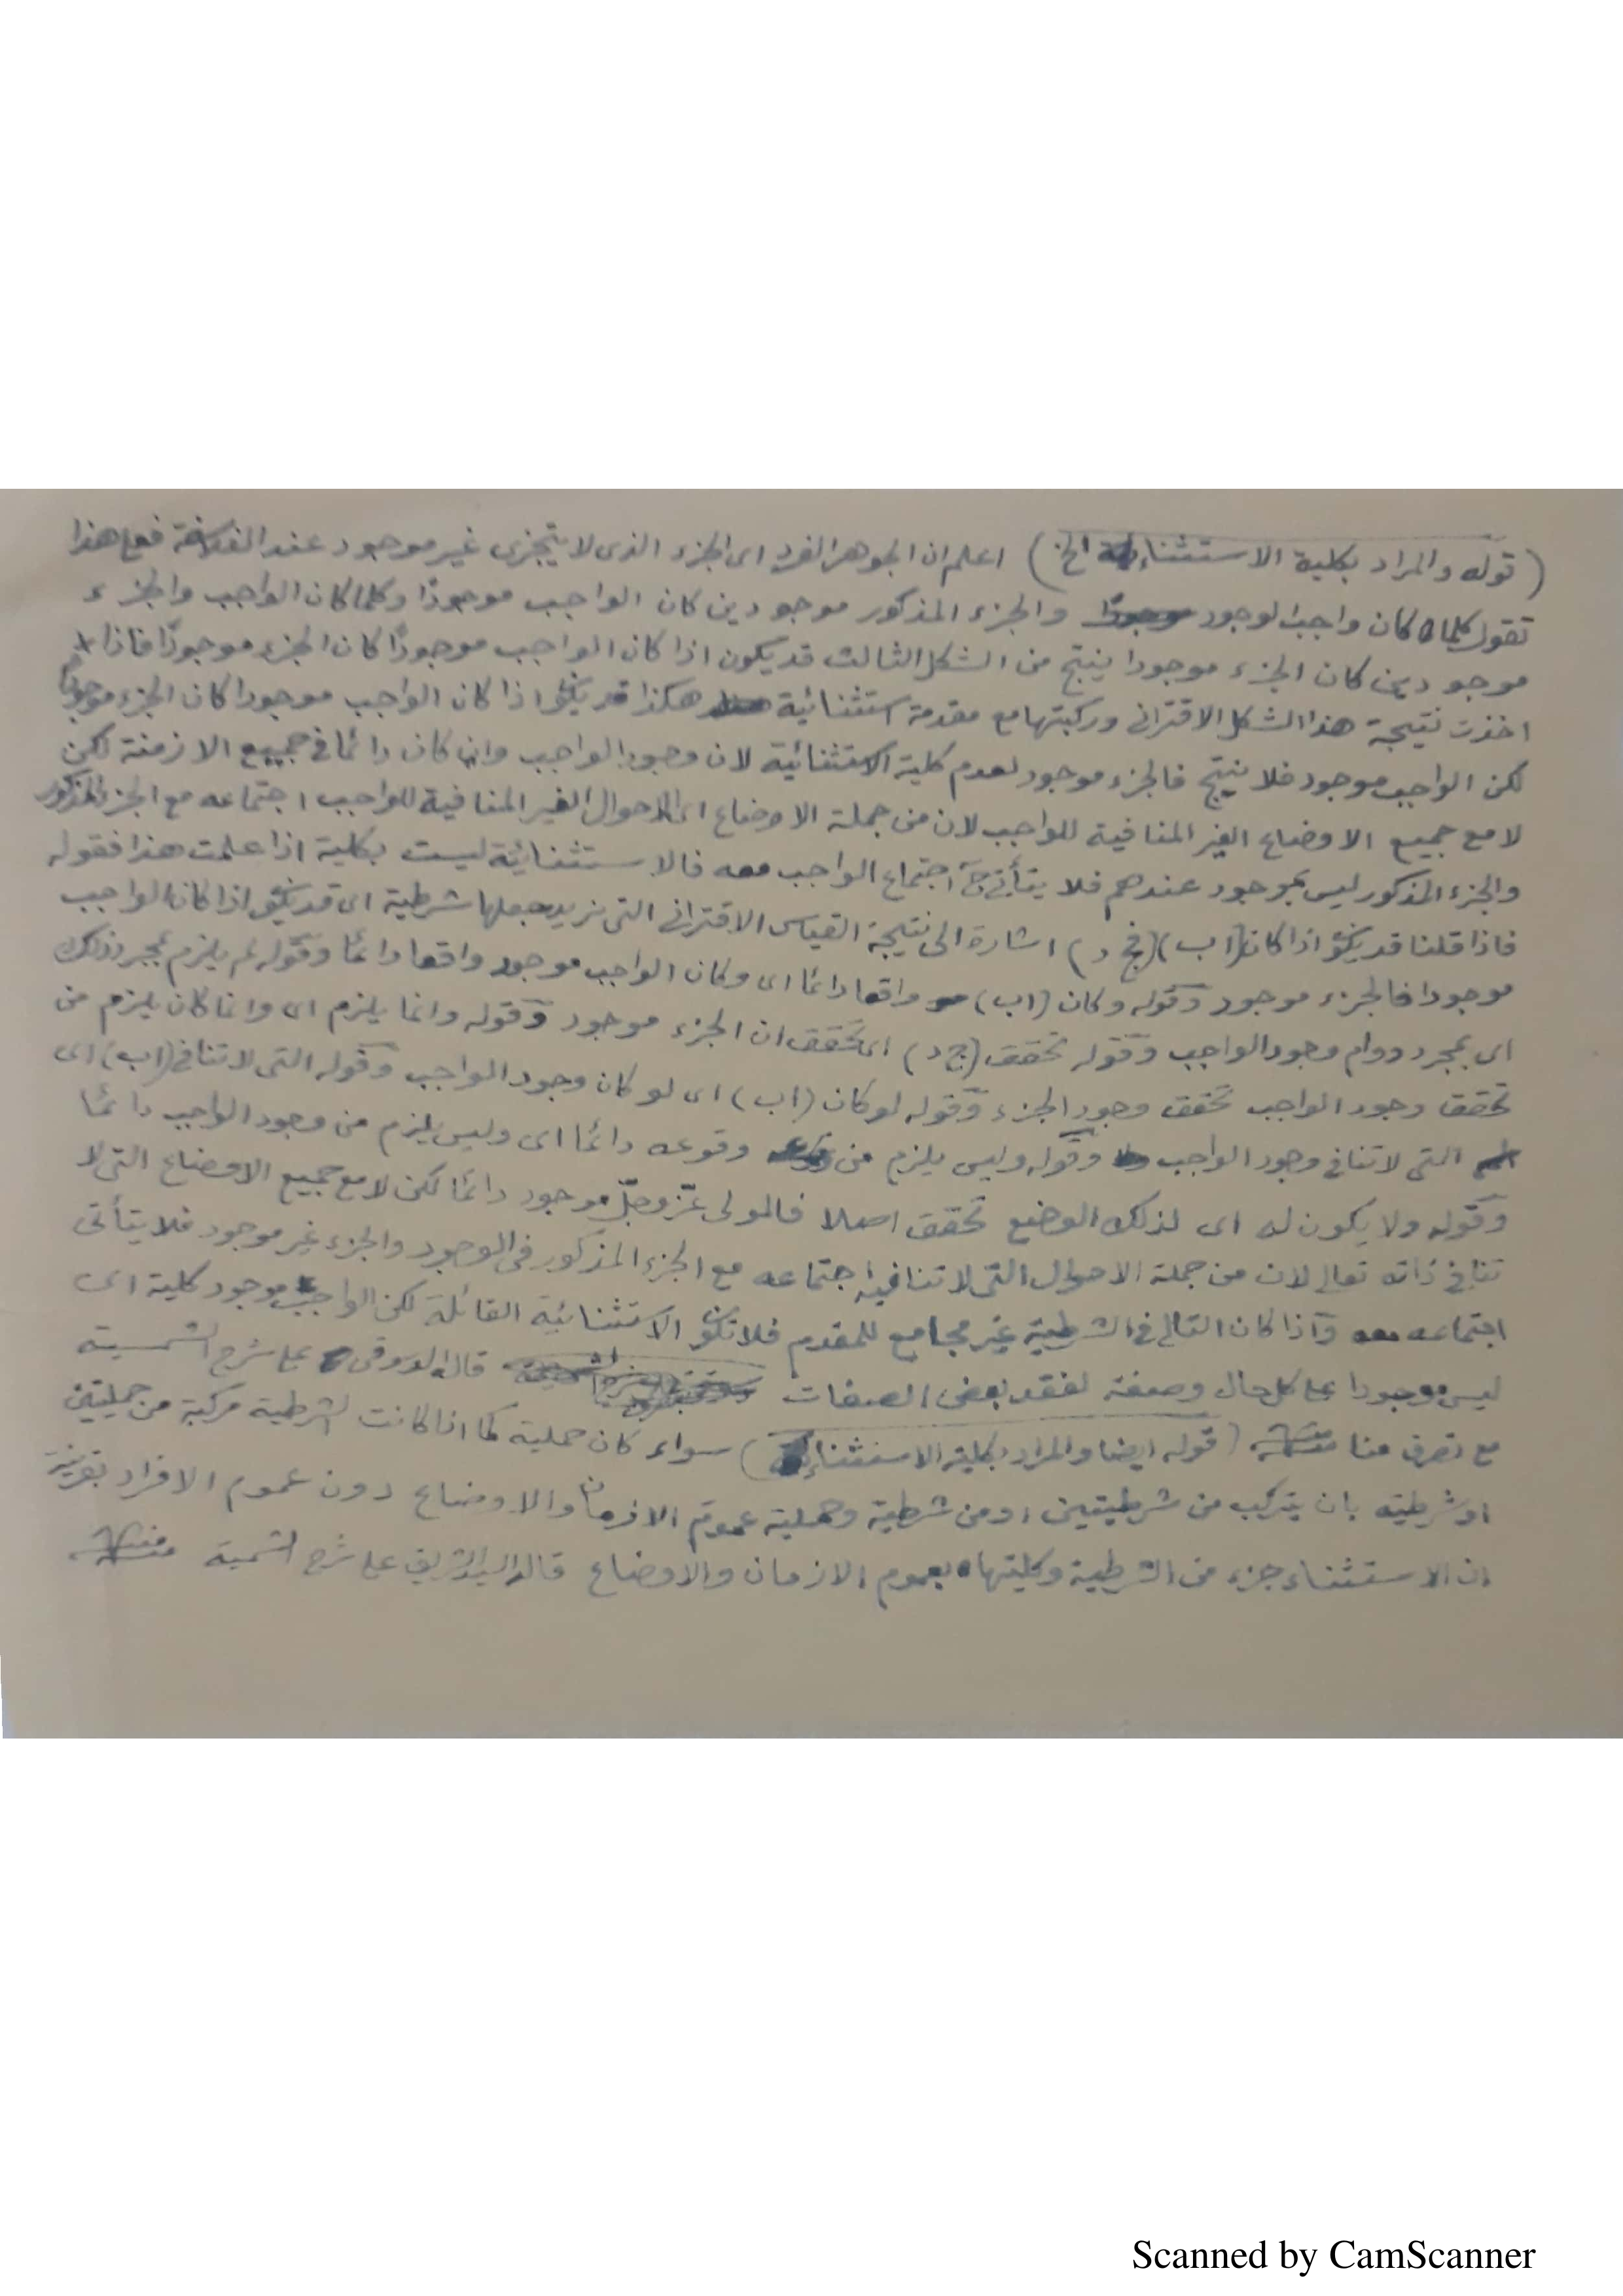 (قوله والمراد بكلية الاستثناء الخ) اعلم ان الجوهر الفرد اى الجزء الذى لا يتجزى غير موجود عند الفلاسفة فعلى هذا
تقول كلما كان واجب الوجود والجزء المذكور موجودين كان الواجب موجودًا وكلما كان الواجب والجزء
موجودين كان الجزء موجودا ينتج من الشكل الثالث قد يكون اذا كان الواجب موجودًا كان الجزء موجودًا فاذا
اخذت نتيجة هذا الشكل الاقترانى وركبتها مع مقدمة استثنائية هكذا قد يكون اذا كان الواجب موجودا كان الجزء موجودًا
لكن الواجب موجود فلا ينتج فالجزء موجود لعدم كلية الاستثنائية لان وجود الواجب وان كان دائما فى جميع الازمنة لكن
لا مع جميع الاوضاع الغير المنافية للواجب لان من جملة الاوضاع اى الاحوال الغير المنافية للواجب اجتماعه مع الجزء المذكور
والجزء المذكور ليس بموجود عندهم فلا يتأتى ح اجتماع الواجب معه فالاستثنائية ليست بكلية اذا علمت هذا فقوله
فاذا قلنا قد يكون اذا كان (اب) (فج د) اشارة الى نتيجة القياس الاقترانى التى نريد جعلها شرطية اى قد يكون اذا كان الواجب
موجودا فالجزء موجود وقوله وكان (اب) واقعا دائما اى وكان الواجب موجود واقعا دائما وقوله لم يلزم بمجرد ذلك
اى بمجرد دوام وجود الواجب وقوله تحقق (ج د) اى تحقق ان الجزء موجود وقوله وانما يلزم اى وانما كان يلزم من
تحقق وجود الواجب تحقق وجود الجزء وقوله لو كان (اب) اى لو كان وجود الواجب وقوله التى لا تنافى (اب) اى
التى لا تنافى وجود الواجب وقوله وليس يلزم من وقوعه دائما اى وليس يلزم من وجود الواجب دائما
وقوله ولا يكون له اى لذلك الوضع تحقق اصلا فالمولى عزّ وجلّ موجود دائما لكن لا مع جميع الاوضاع التى لا
تنافى ذاته تعالى لان من جملة الاحوال التى لا تنافيه اجتماعه مع الجزء المذكور فى الوجود والجزء غير موجود فلا يتأتى
اجتماعه معه واذا كان التالى فى الشرطية غير مجامع للمقدم فلا تكون الاستثنائية القائلة لكن الواجب موجود كلية اى
ليس موجودا على كل حال وصفة لفقد بعض الصفات قاله الدسوقى على شرح الشمسية
مع تصرف منا (قوله ايضا والمراد بكلية الاستثناء) سواء كان حملية كما اذا كانت الشرطية مركبة من حمليتين
او شرطيته بان يتركب من شرطيتين او من شرطية وحملية عموم الازمان والاوضاع دون عموم الافراد بقرينة
ان الاستثناء جزء من الشرطية وكليتها بعموم الازمان والاوضاع قاله السيد الشريف على شرح الشمسية
Scanned by CamScanner